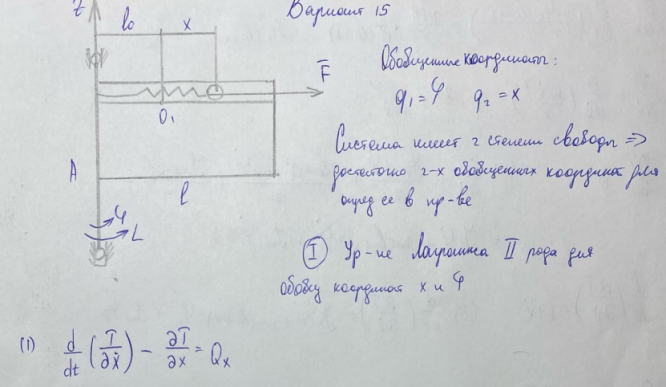 Вариант 15
z
l₀ x
F̅
Обобщенные координаты:
q₁ = φ q₂ = x
O₁
Система имеет 2 степени свободы =>
A
достаточно 2-х обобщенных координат для
l
опред ее в пр-ве
φ
L
I Ур-ие Лагранжа II рода для
обобщ координат x и φ
(1) d/dt (T/∂ẋ) − ∂T/∂x = Qₓ